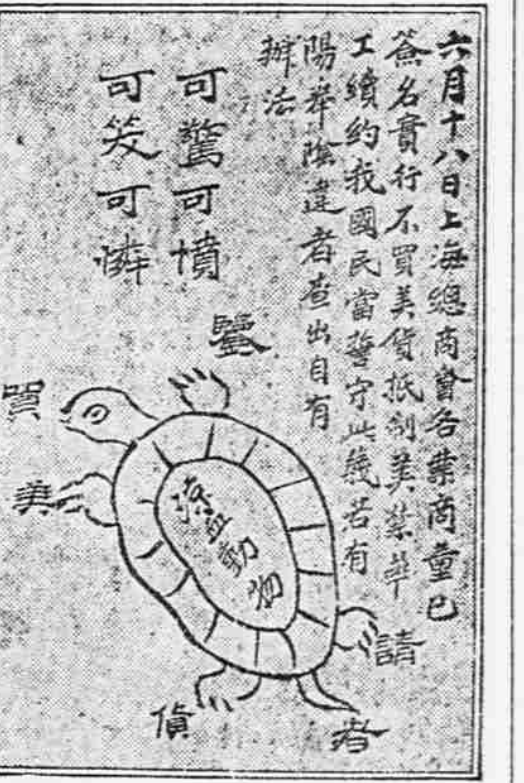 六月十八日上海總商會各業商董已
簽名實行不買美貨抵制美禁華
工續約我國民當誓守此義若有
陽奉陰違者查出自有
辦法
可驚可憤
可笑可憐
涼血動物
買
美
貨
者
請
鑒